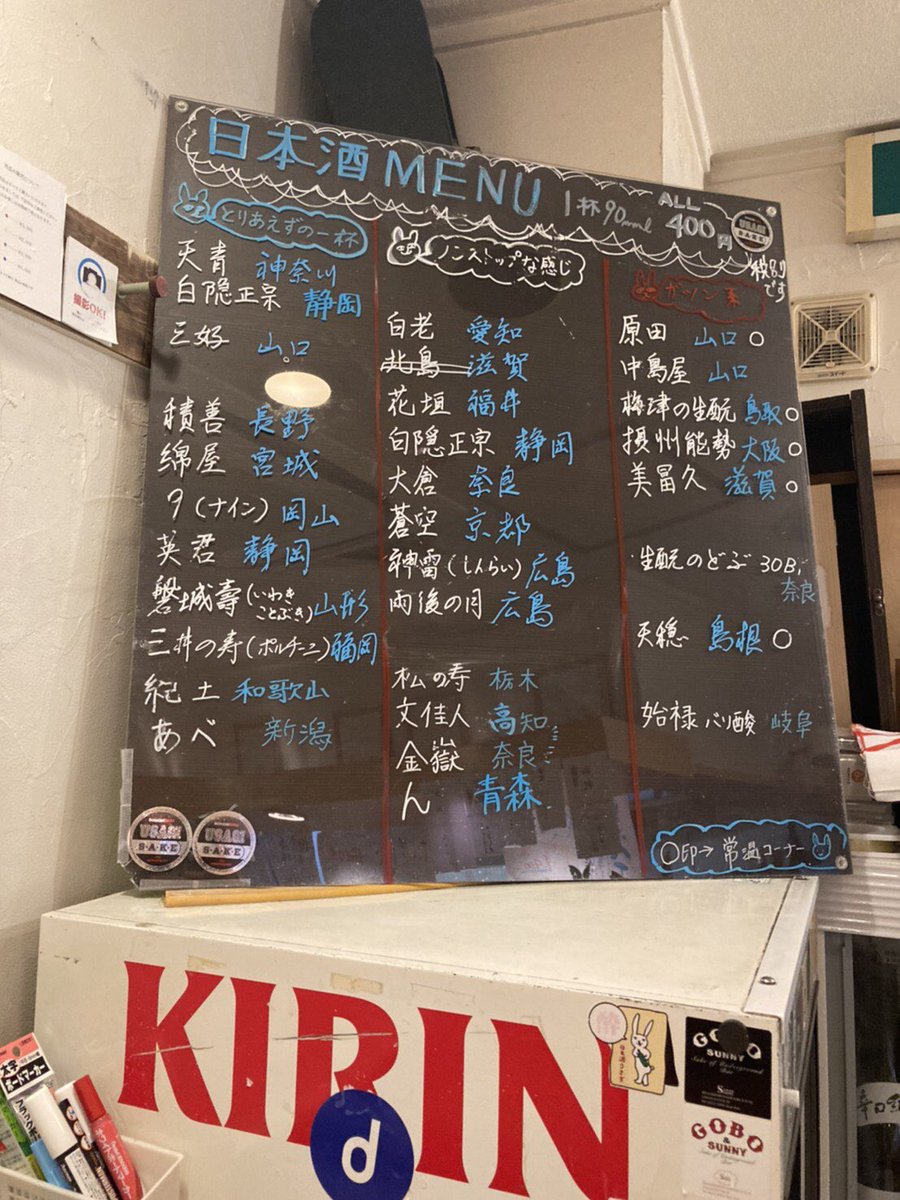 日本酒 MENU 1杯90ml ALL 400円
税別です
とりあえずの一杯
天青 神奈川
白隠正宗 静岡
三好 山口
積善 長野
綿屋 宮城
9(ナイン) 岡山
英君 静岡
磐城壽(いわきことぶき) 山形
三井の寿(ポルチーニ) 福岡
紀土 和歌山
あべ 新潟
ノンストップな感じ
白老 愛知
北島 滋賀
花垣 福井
白隠正宗 静岡
大倉 奈良
蒼空 京都
神雷(しんらい) 広島
雨後の月 広島
松の寿 栃木
文佳人 高知
金嶽 奈良
ん 青森
ガツン系
原田 山口 ○
中島屋 山口
梅津の生酛 鳥取 ○
摂州能勢 大阪 ○
美冨久 滋賀 ○
生酛のどぶ 30BY
奈良
天穏 島根 ○
始禄 バリ酸 岐阜
○印→常温コーナー
USAGI
SAKE
USAGI
S・A・K・E
USAGI
S・A・K・E
撮影OK!
KIRIN
d
日本酒うさぎ
GOBO
&
SUNNY
GOBO
&
SUNNY
太字
ボードマーカー
ブラック